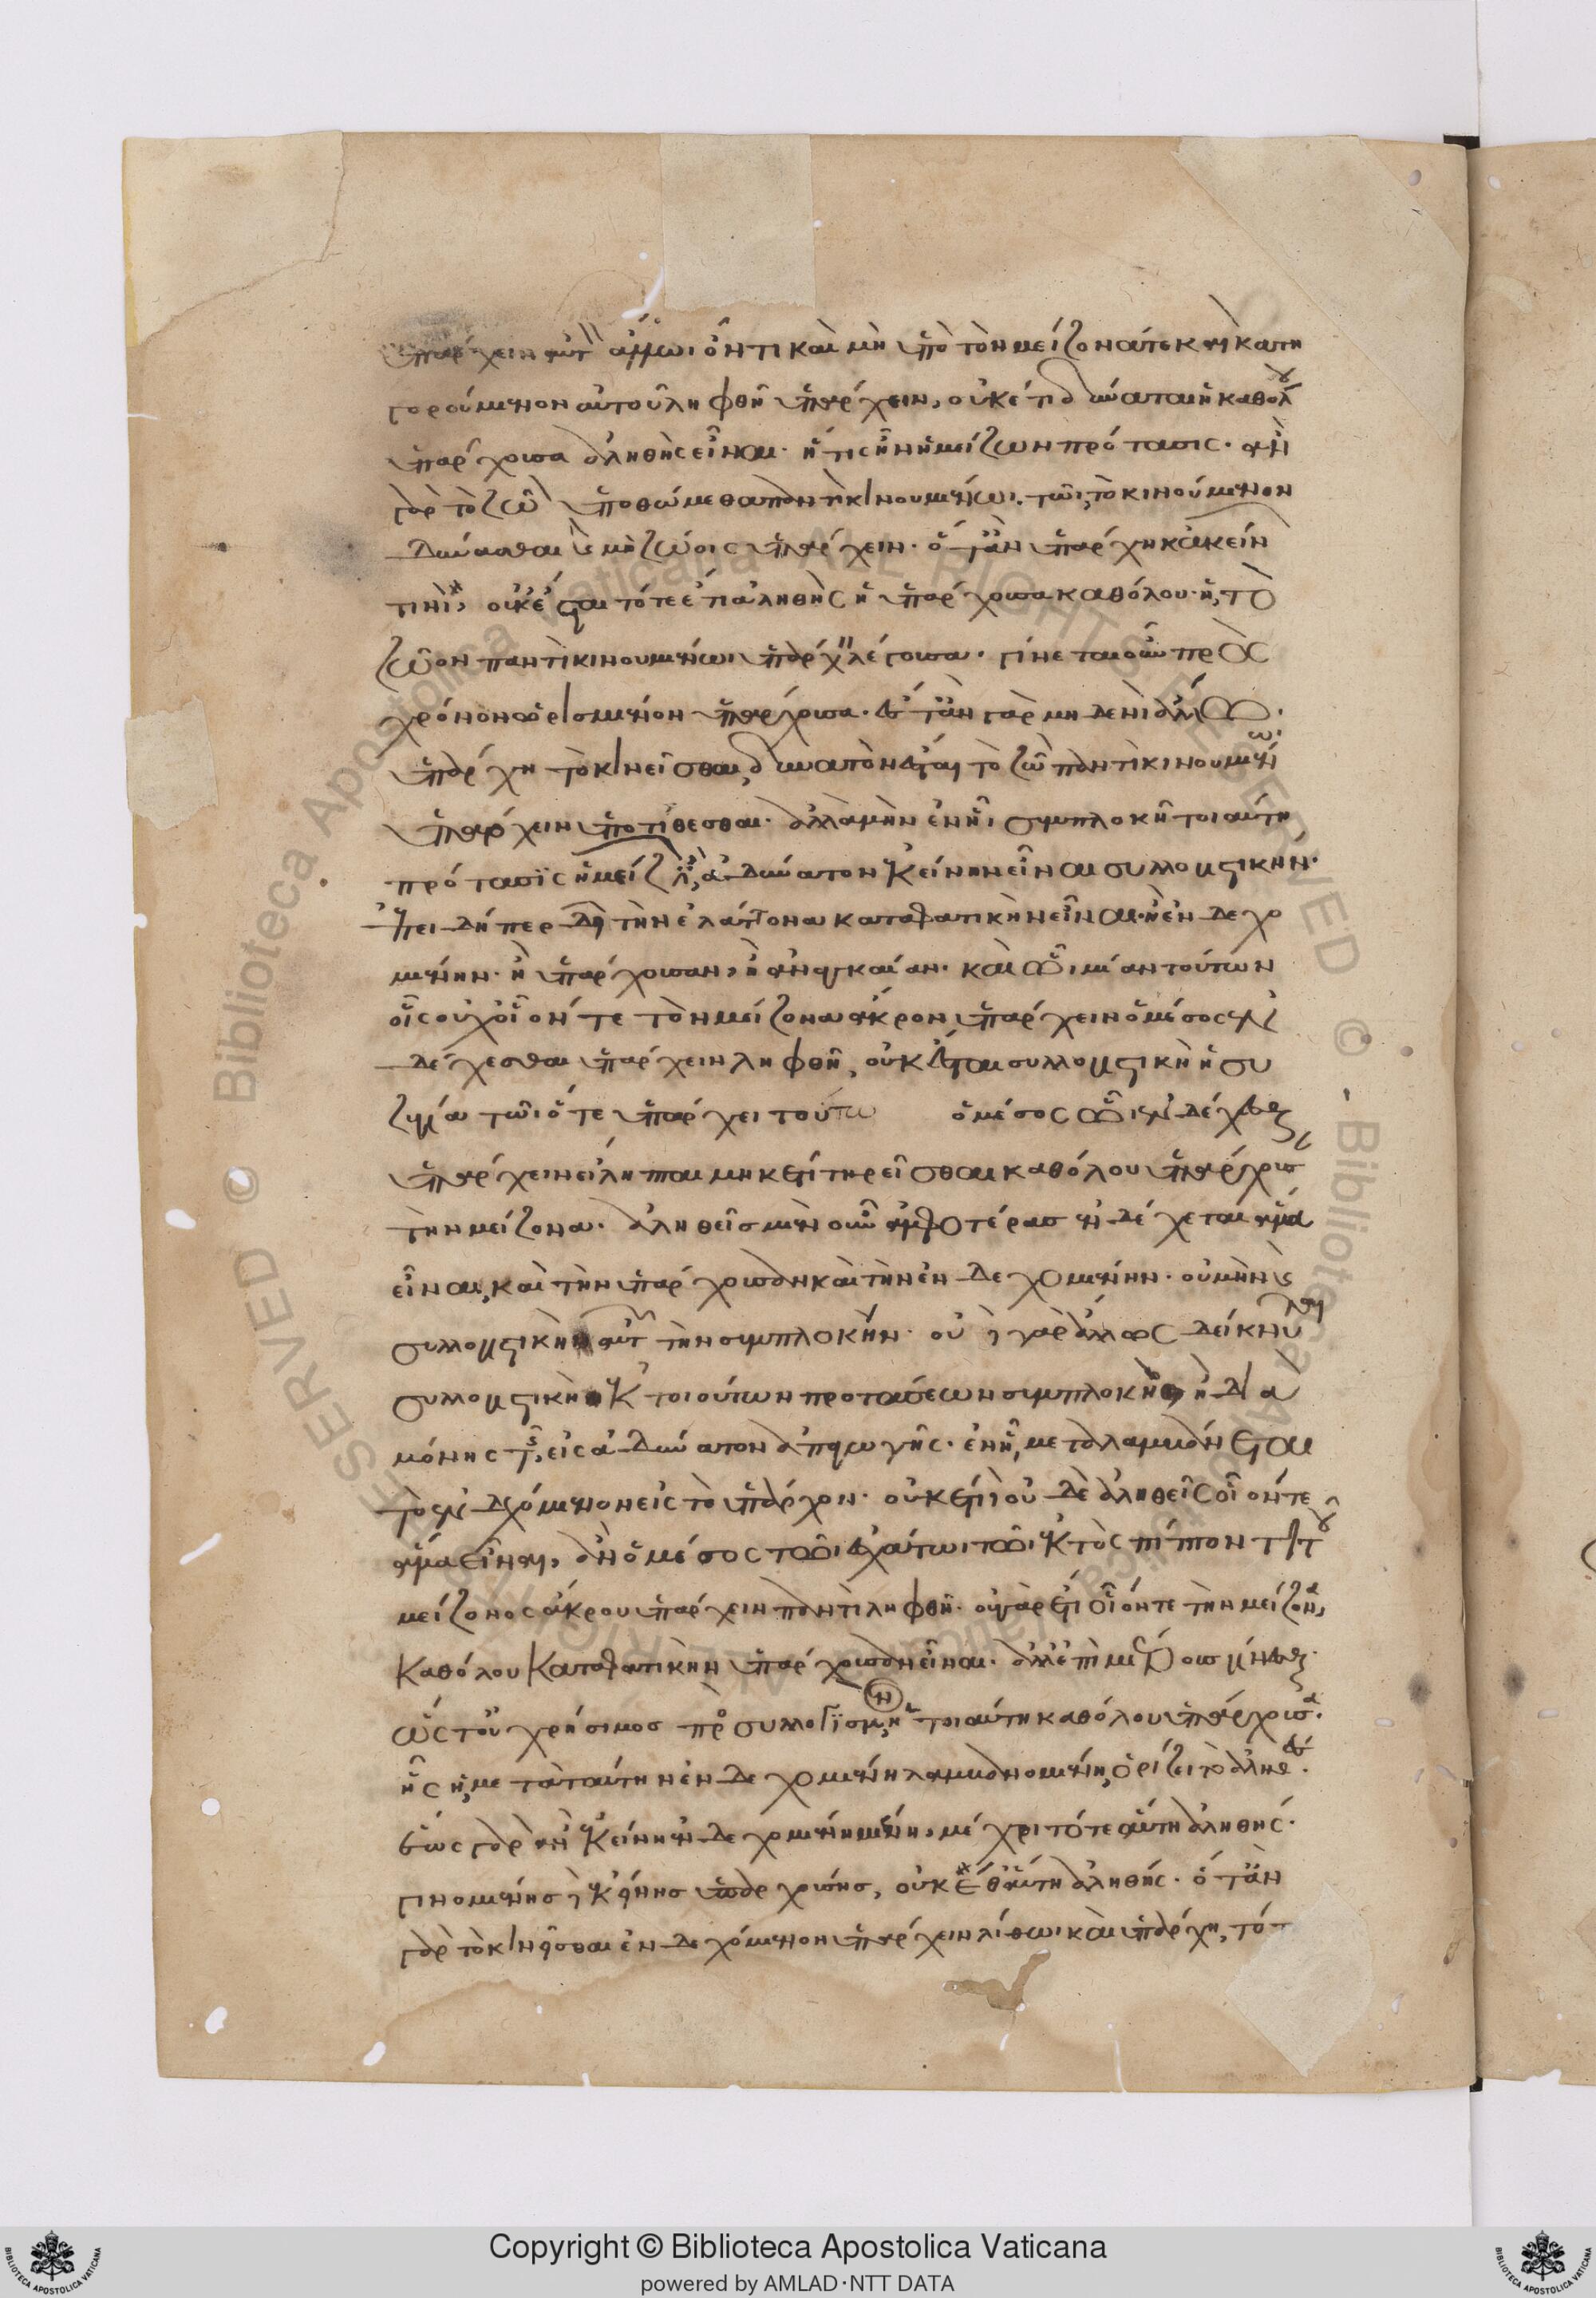 ὑπάρχειν αὐτ ἄλλωι ὄντι καὶ μὴ ὑπὸ τὸν μείζονά τε καὶ κατη
γορούμενον αὐτοῦ ληφθῆ ὑπάρχειν, οὐκέτι δύναται ἡ καθόλου
ὑπάρχουσα ἀληθὴς εἶναι· ἥτις ἦν ἡ μείζων πρότασις· ἂν
γὰρ τὸ ζῶ ὑποθώμεθα παντὶ κινουμένωι. τῶι, τὸ κινούμενον
δύνασθαι καὶ μὴ ζώοις ὑπάρχειν· ὅταν ὑπάρχη κἀκείν
τινὶ, οὐκ ἔσται τότε ἔτι ἀληθὴς ἡ ὑπάρχουσα καθόλου· ἡ, τὸ
ζῶον παντὶ κινουμένωι ὑπάρχειν λέγουσα· γίνεται οὖν πρὸς
χρόνον ὡρισμένον ὑπάρχουσα· ὅταν γὰρ μηδενὶ ἄλλωι
ὑπάρχη τὸ κινεῖσθαι, δυνατὸν ἔσται τὸ ζῶ παντὶ κινουμένω
ὑπάρχειν ὑποτίθεσθαι· ἀλλὰ μὴν ἐν ἧι συμπλοκῆ τοιαύτη
πρότασις ἡ μείζ ἦ, ἀδύνατον ἐκείνην εἶναι συλλογιστικήν·
ἐπειδήπερ δεῖ τὴν ἐλάττονα καταφατικὴν εἶναι· ἢ ἐνδεχο
μένην· ἢ ὑπάρχουσαν, ἢ ἀναγκαίαν· καὶ ὧι μίαν τούτων
οἷς οὐχ οἷόν τε τὸν μείζονα ἄκρον ὑπάρχειν ὁ μέσος ἐν
δέχεσθαι ὑπάρχειν ληφθῆ, οὐκ ἔσται συλλογιστικὴ ἡ συ
ζυγία τῶι ὅτε ὑπάρχει τούτω ὁ μέσος ὧι ἐνδέχεσθαι
ὑπάρχειν εἴληπται μηκέτι τηρεῖσθαι καθόλου ὑπάρχουσ
τὴν μείζονα· ἀληθεῖς μὲν οὖν ἀμφοτέρας ἐνδέχεται ἅμα
εἶναι, καὶ τὴν ὑπάρχουσαν καὶ τὴν ἐνδεχομένην· οὐ μὴν καὶ
συλλογιστικὴν αὐτ τὴν συμπλοκήν· οὐ γὰρ ἄλλως δείκνυται
συλλογιστικὴ ἐκ τοιούτων προτάσεων συμπλοκὴ ἢ διὰ
μόνης τῆς, εἰς ἀδύνατον ἀπαγωγῆς· ἐν ἧι, μεταλαμβάνεται
τὸ ἐνδεχόμενον εἰς τὸ ὑπάρχον· οὐκέτι οὐδὲ ἀληθεῖς οἷόν τε
ἅμα εἶναι, ἂν ὁ μέσος τῶι ἐσχάτωι τῶι ἐκτὸς πίπτοντι τοῦ
μείζονος ἄκρου ὑπάρχειν παντὶ ληφθῆ· οὐ γὰρ ἔτι οἷόν τε τὴν μείζονα,
καθόλου καταφατικὴν ὑπάρχουσαν εἶναι· ἀλλ' ἐπὶ μέρους γίνεσθαι·
ὥστ' οὐ χρήσιμος πρὸ συλλογισμ, ἡ τοιαύτη καθόλου ὑπάρχουσα·
ἧς ἡ, μετὰ ταύτην ἐνδεχομένη λαμβανομένη, ὁρίζει τὸ ἀληθές·
ἕως γὰρ ἂν ἐκείνη ἐνδεχομένη μένη, μέχρι τότε αὕτη ἀληθής·
γινομένης ἐκείνης ὑπαρχούσης, οὐκέθ' αὕτη ἀληθής· ὅταν
γὰρ τὸ κινεῖσθαι ἐνδεχόμενον ὑπάρχειν λίθωι καὶ ὑπάρχη, τότ
Copyright © Biblioteca Apostolica Vaticana
powered by AMLAD·NTT DATA